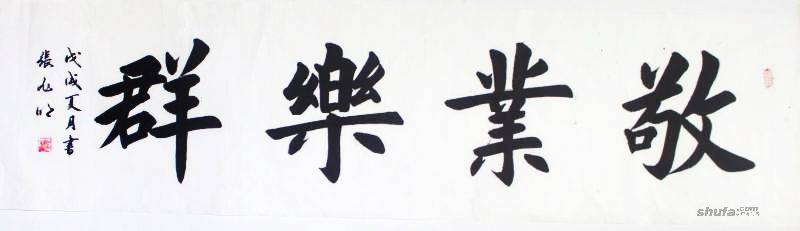 敬業樂群
戊戌夏月書
張旭明
shufa.com